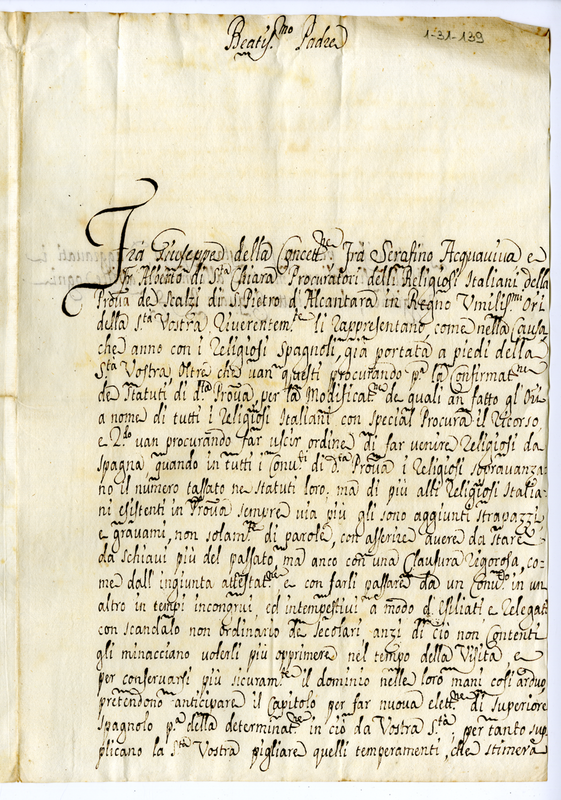 Beatis.mo Padre
1-31-139
Frà Giuseppe della Concett.ne Frà Serafino Acquaviva e
Frà Alberto di S.ta Chiara Procuratori delli Religiosi Italiani della
Prov.a de Scalzi di S. Pietro d'Alcantara in Regno Umilis.mi Ori
della S.tà Vostra Riverentem.te li rappresentano, come nella Causa
che anno con i Religiosi Spagnoli, già portata a piedi della
S.tà Vostra, oltre che van questi procurando p.a la Confirmat.ne
de Statuti di d.a Prova, per la Modificat.ne de quali an fatto gl'Ori
a nome di tutti i Religiosi Italiani con special Procura il Ricorso,
e 2.do van procurando far uscir ordine di far venire Religiosi da
Spagna quando in tutti i Conv.ti di d.ta Prova i Religiosi sopravanza-
no il numero tassato ne Statuti loro: ma di più alli Religiosi Italia-
ni esistenti in Prova sempre via più gli sono aggiunti strapazzi
e gravami, non solam.te di parole, con asserire avere da stare
da schiavi più del passato, ma anco con una Clausura rigorosa, co-
me dall'ingiunta attestat.ne e con farli passare da un Conv.to in un
altro in tempi incongrui, ed intempestivi a modo d'Esiliati e Relegati
con scandalo non ordinario de Secolari, anzi di ciò non Contenti
gli minacciano volerli più opprimere nel tempo della Visita, e
per conservarsi più sicuram.te il dominio nelle loro mani così arduo
pretendono anticipare il Capitolo per far nuova elett.ne di Superiore
Spagnolo p.a della determinat.ne in ciò da Vostra S.tà; per tanto sup-
plicano la S.tà Vostra pigliare quelli temperamenti, che stimerà